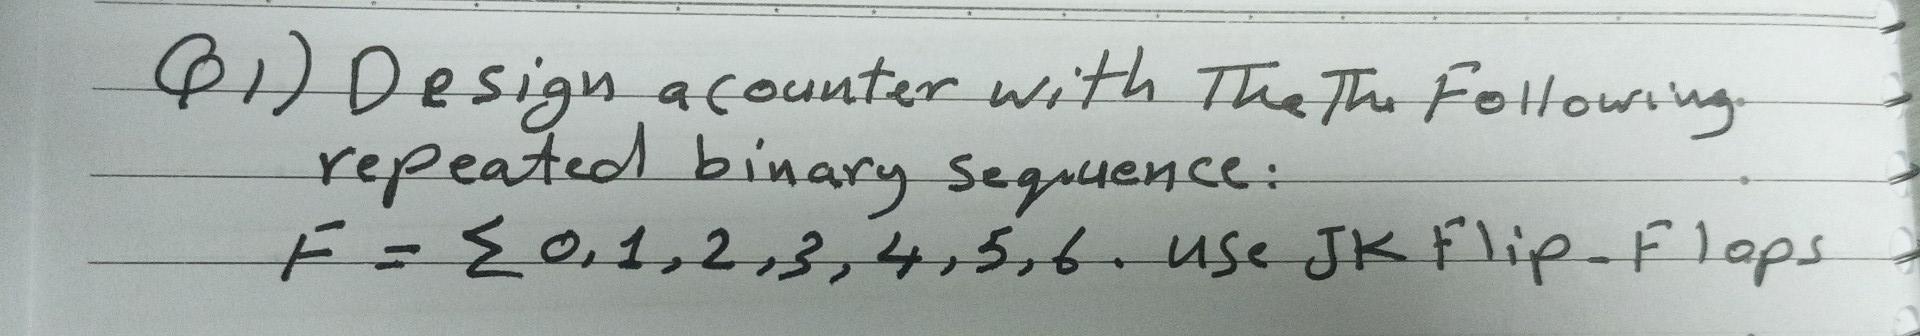 Q1) Design a counter with The The Following.
repeated binary sequence:
F = Σ 0,1,2,3,4,5,6. use JK Flip-Flops